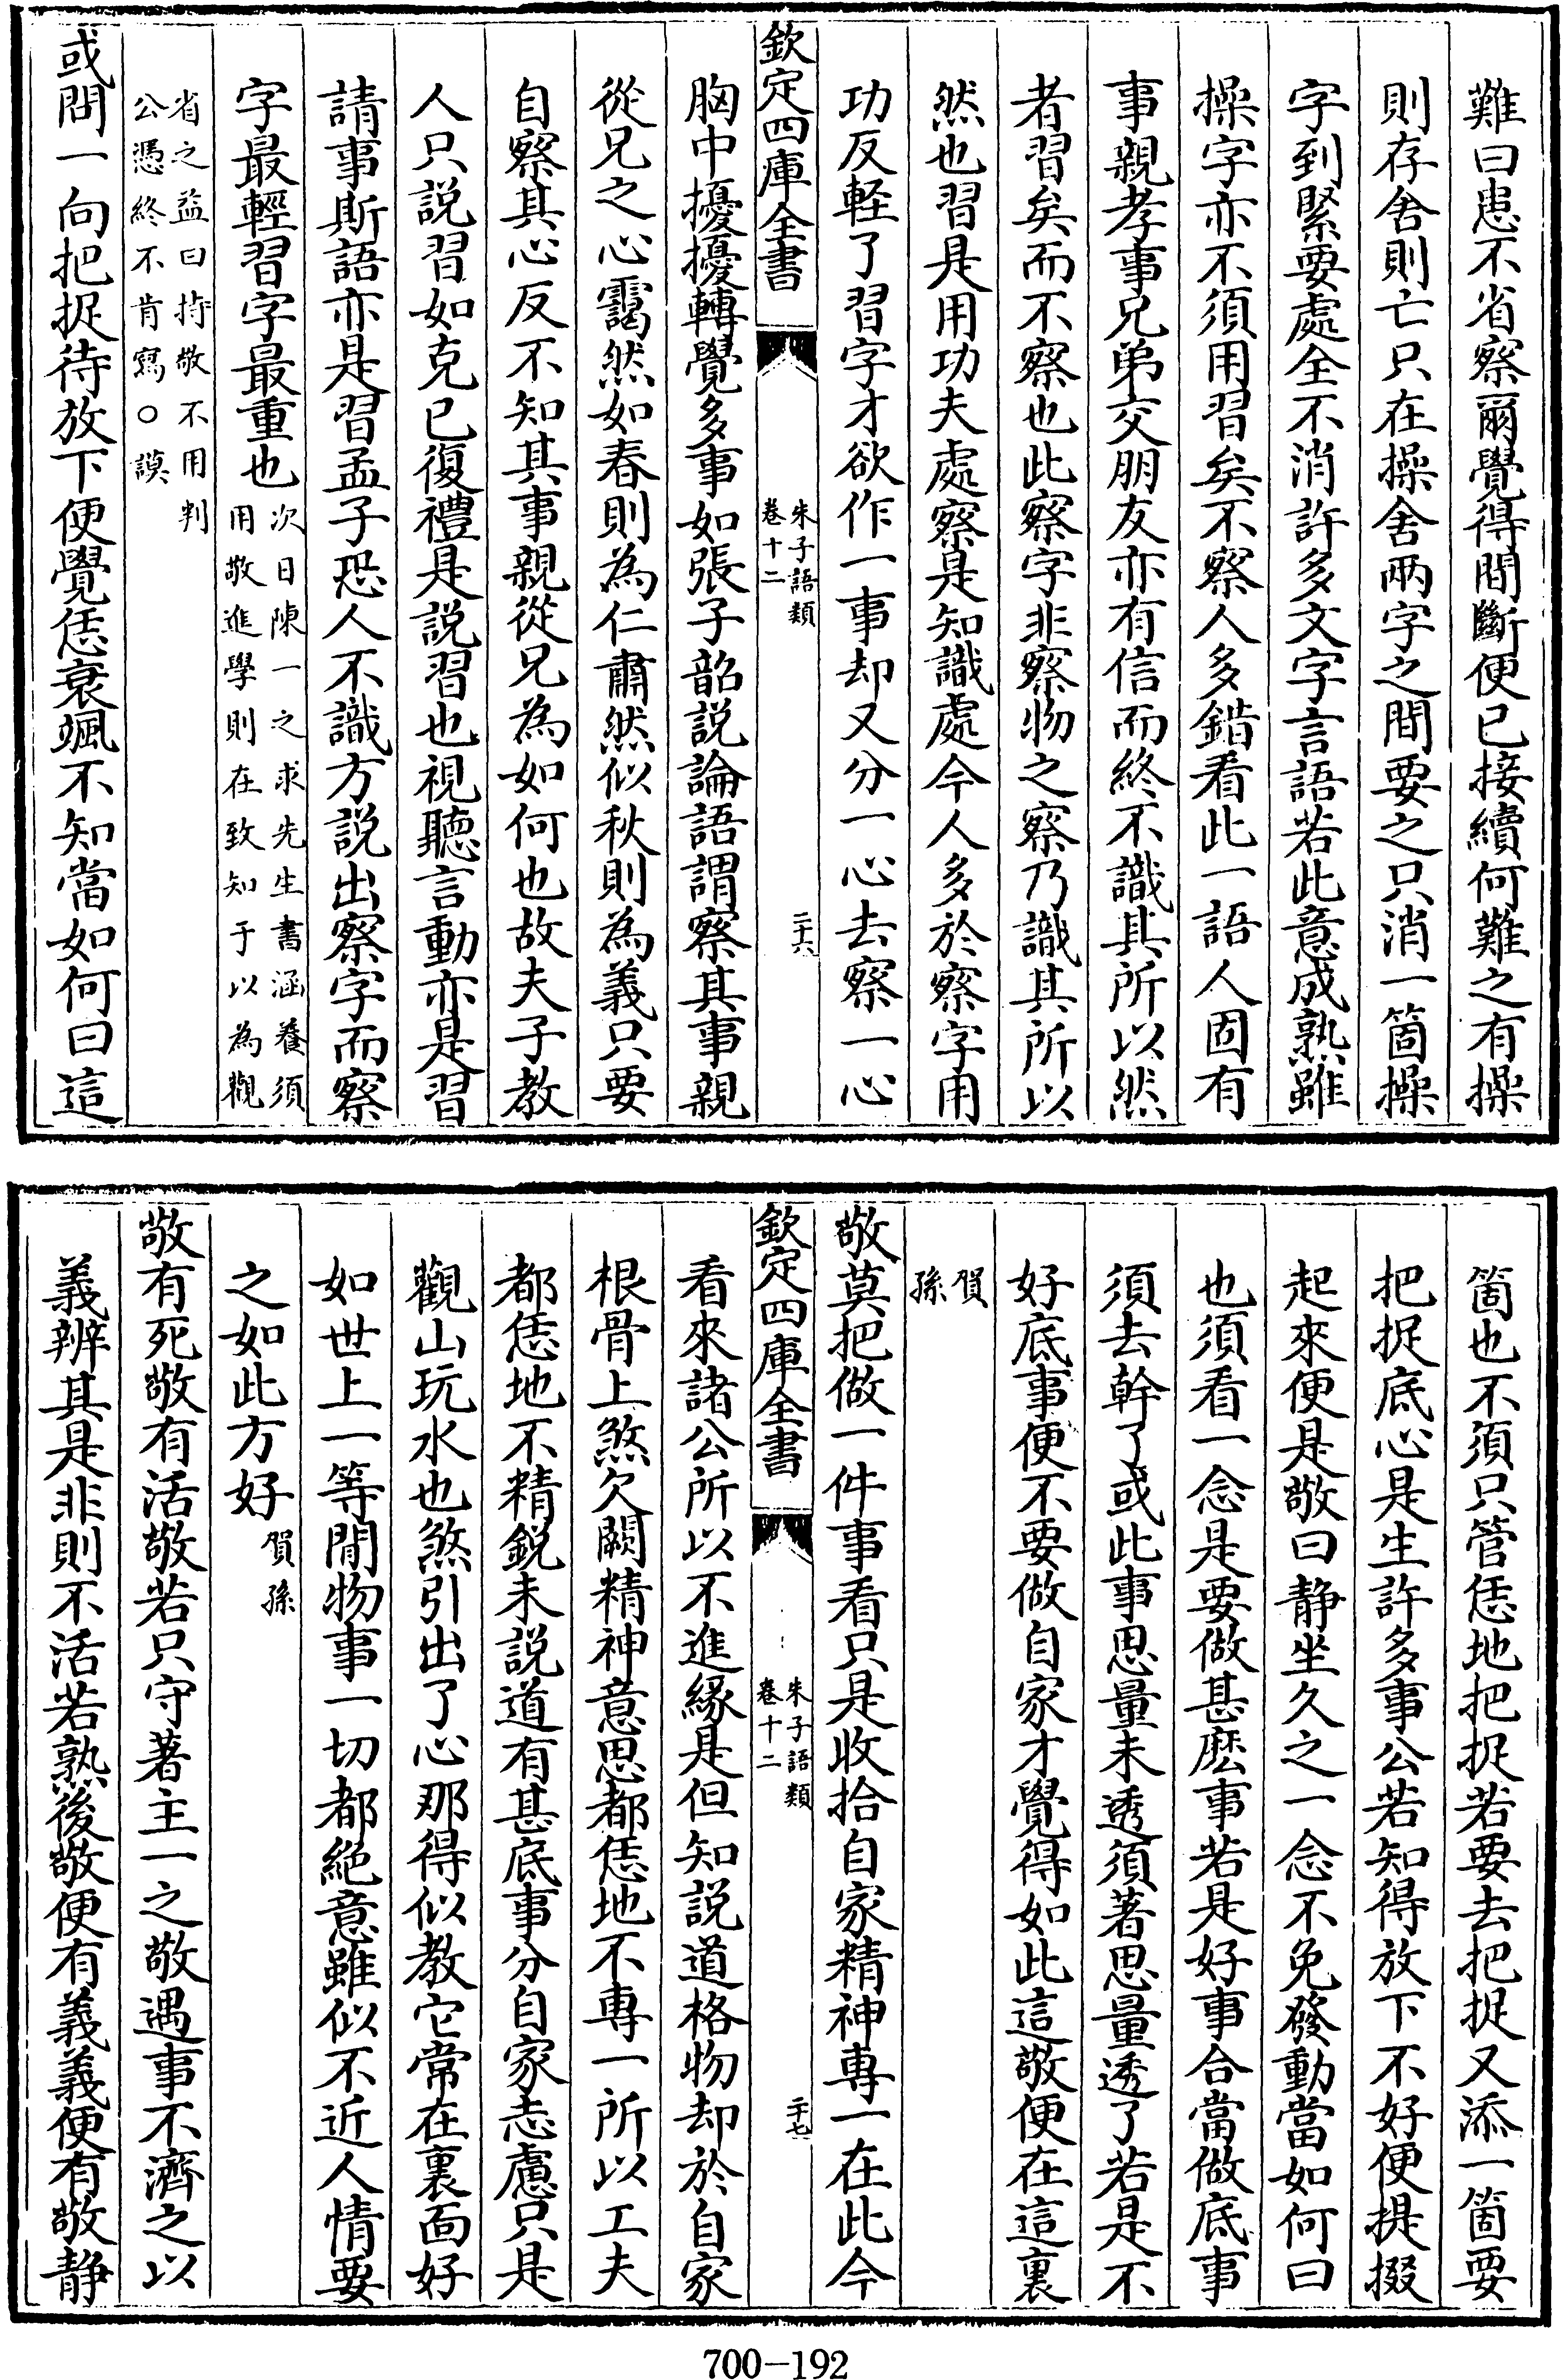 難曰患不省察爾覺得間斷便已接續何難之有操
則存舍則亡只在操舍兩字之間要之只消一箇操
字到緊要處全不消許多文字言語若此意成熟雖
操字亦不須用習矣不察人多錯看此一語人固有
事親孝事兄弟交朋友亦有信而終不識其所以然
者習矣而不察也此察字非察物之察乃識其所以
然也習是用功夫處察是知識處今人多於察字用
功反輕了習字才欲作一事却又分一心去察一心
欽定四庫全書
朱子語類
卷十二
二十六
胸中擾擾轉覺多事如張子韶説論語謂察其事親
從兄之心靄然如春則為仁肅然似秋則為義只要
自察其心反不知其事親從兄為如何也故夫子教
人只説習如克己復禮是説習也視聽言動亦是習
請事斯語亦是習孟子恐人不識方説出察字而察
字最輕習字最重也次日陳一之求先生書涵養須
用敬進學則在致知于以為觀
省之益曰持敬不用判
公憑終不肯寫○謨
或問一向把捉待放下便覺恁衰颯不知當如何曰這
箇也不須只管恁地把捉若要去把捉又添一箇要
把捉底心是生許多事公若知得放下不好便提掇
起來便是敬曰静坐久之一念不免發動當如何曰
也須看一念是要做甚麽事若是好事合當做底事
須去幹了或此事思量未透須著思量透了若是不
好底事便不要做自家才覺得如此這敬便在這裏
賀
孫
敬莫把做一件事看只是收拾自家精神專一在此今
欽定四庫全書
朱子語類
卷十二
二十七
看來諸公所以不進緣是但知説道格物却於自家
根骨上煞欠闕精神意思都恁地不專一所以工夫
都恁地不精鋭未説道有甚底事分自家志慮只是
觀山玩水也煞引出了心那得似教它常在裏面好
如世上一等閒物事一切都絶意雖似不近人情要
之如此方好賀孫
敬有死敬有活敬若只守著主一之敬遇事不濟之以
義辨其是非則不活若熟後敬便有義義便有敬静
700-192